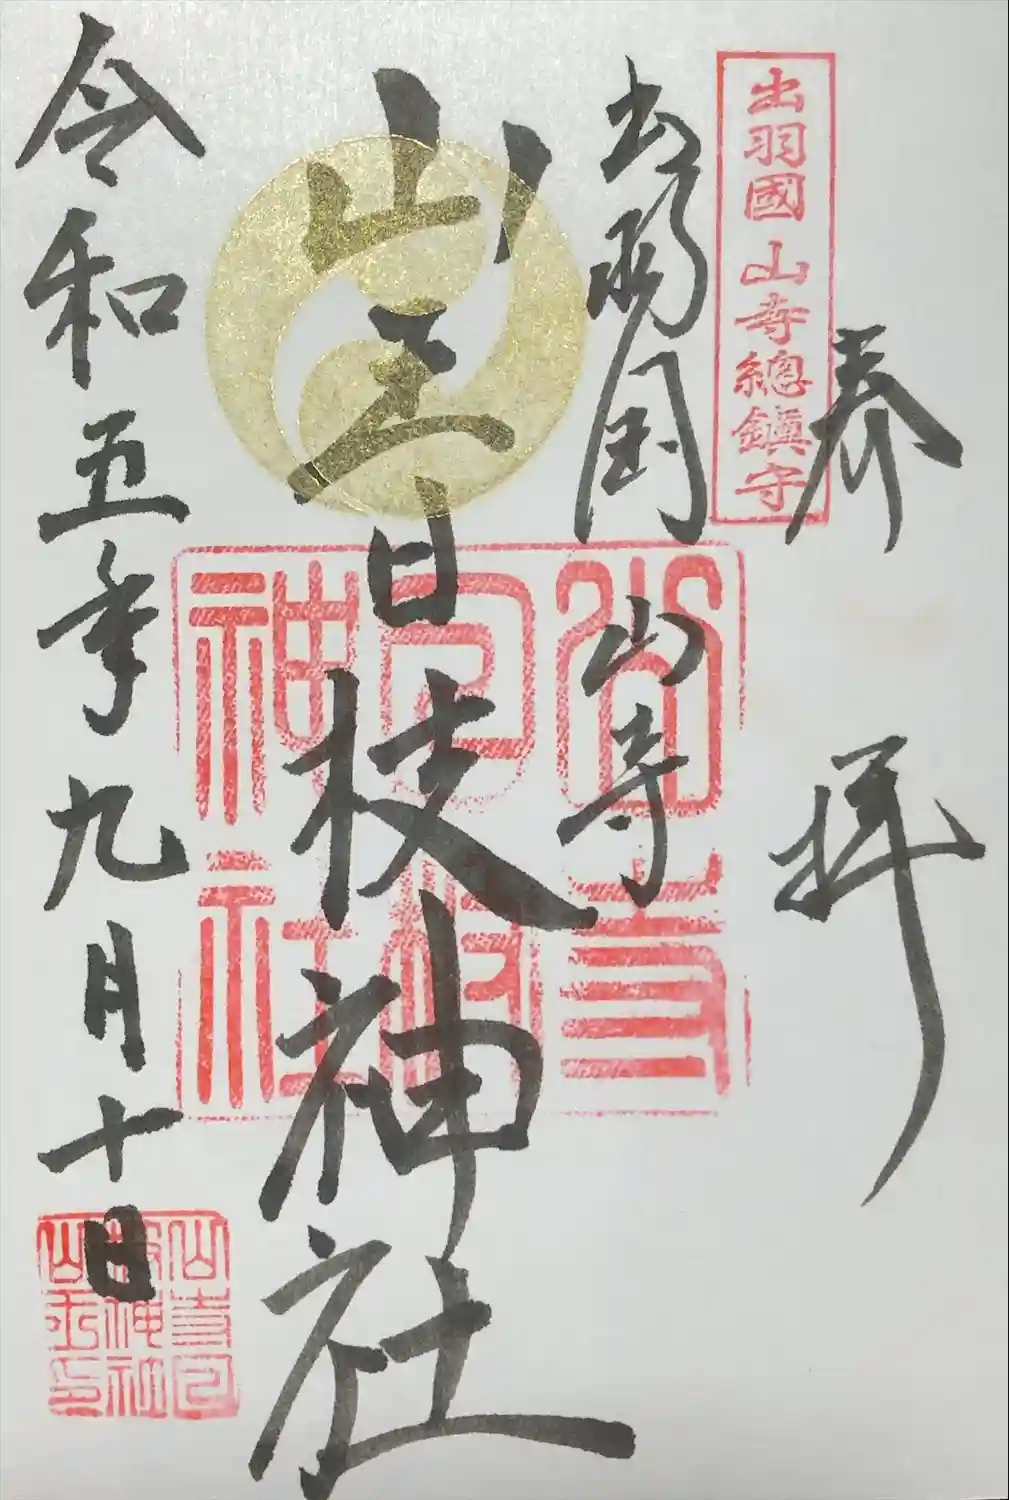 奉拝
出羽國 山寺總鎮守
出羽国 山寺
山王日枝神社
令和五年九月十日
山寺日枝神社